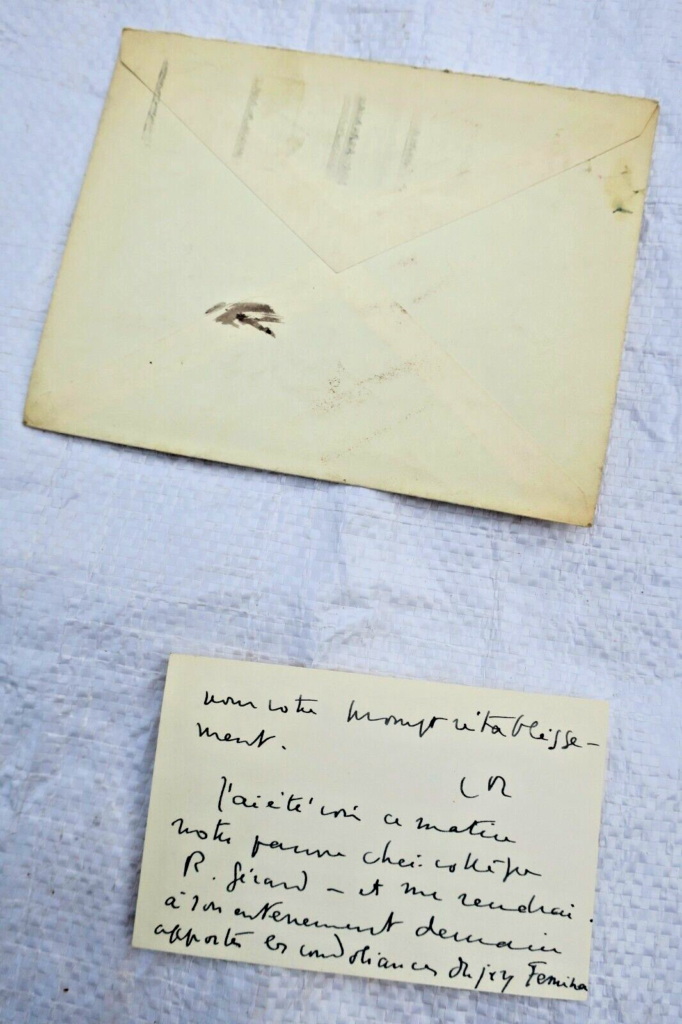 pour votre prompt rétablisse-
ment.
J'ai été voir ce matin
notre pauvre cher collègue
R. Gérard — et me rendrai
à son enterrement demain
apporter les condoléances du jury Femina